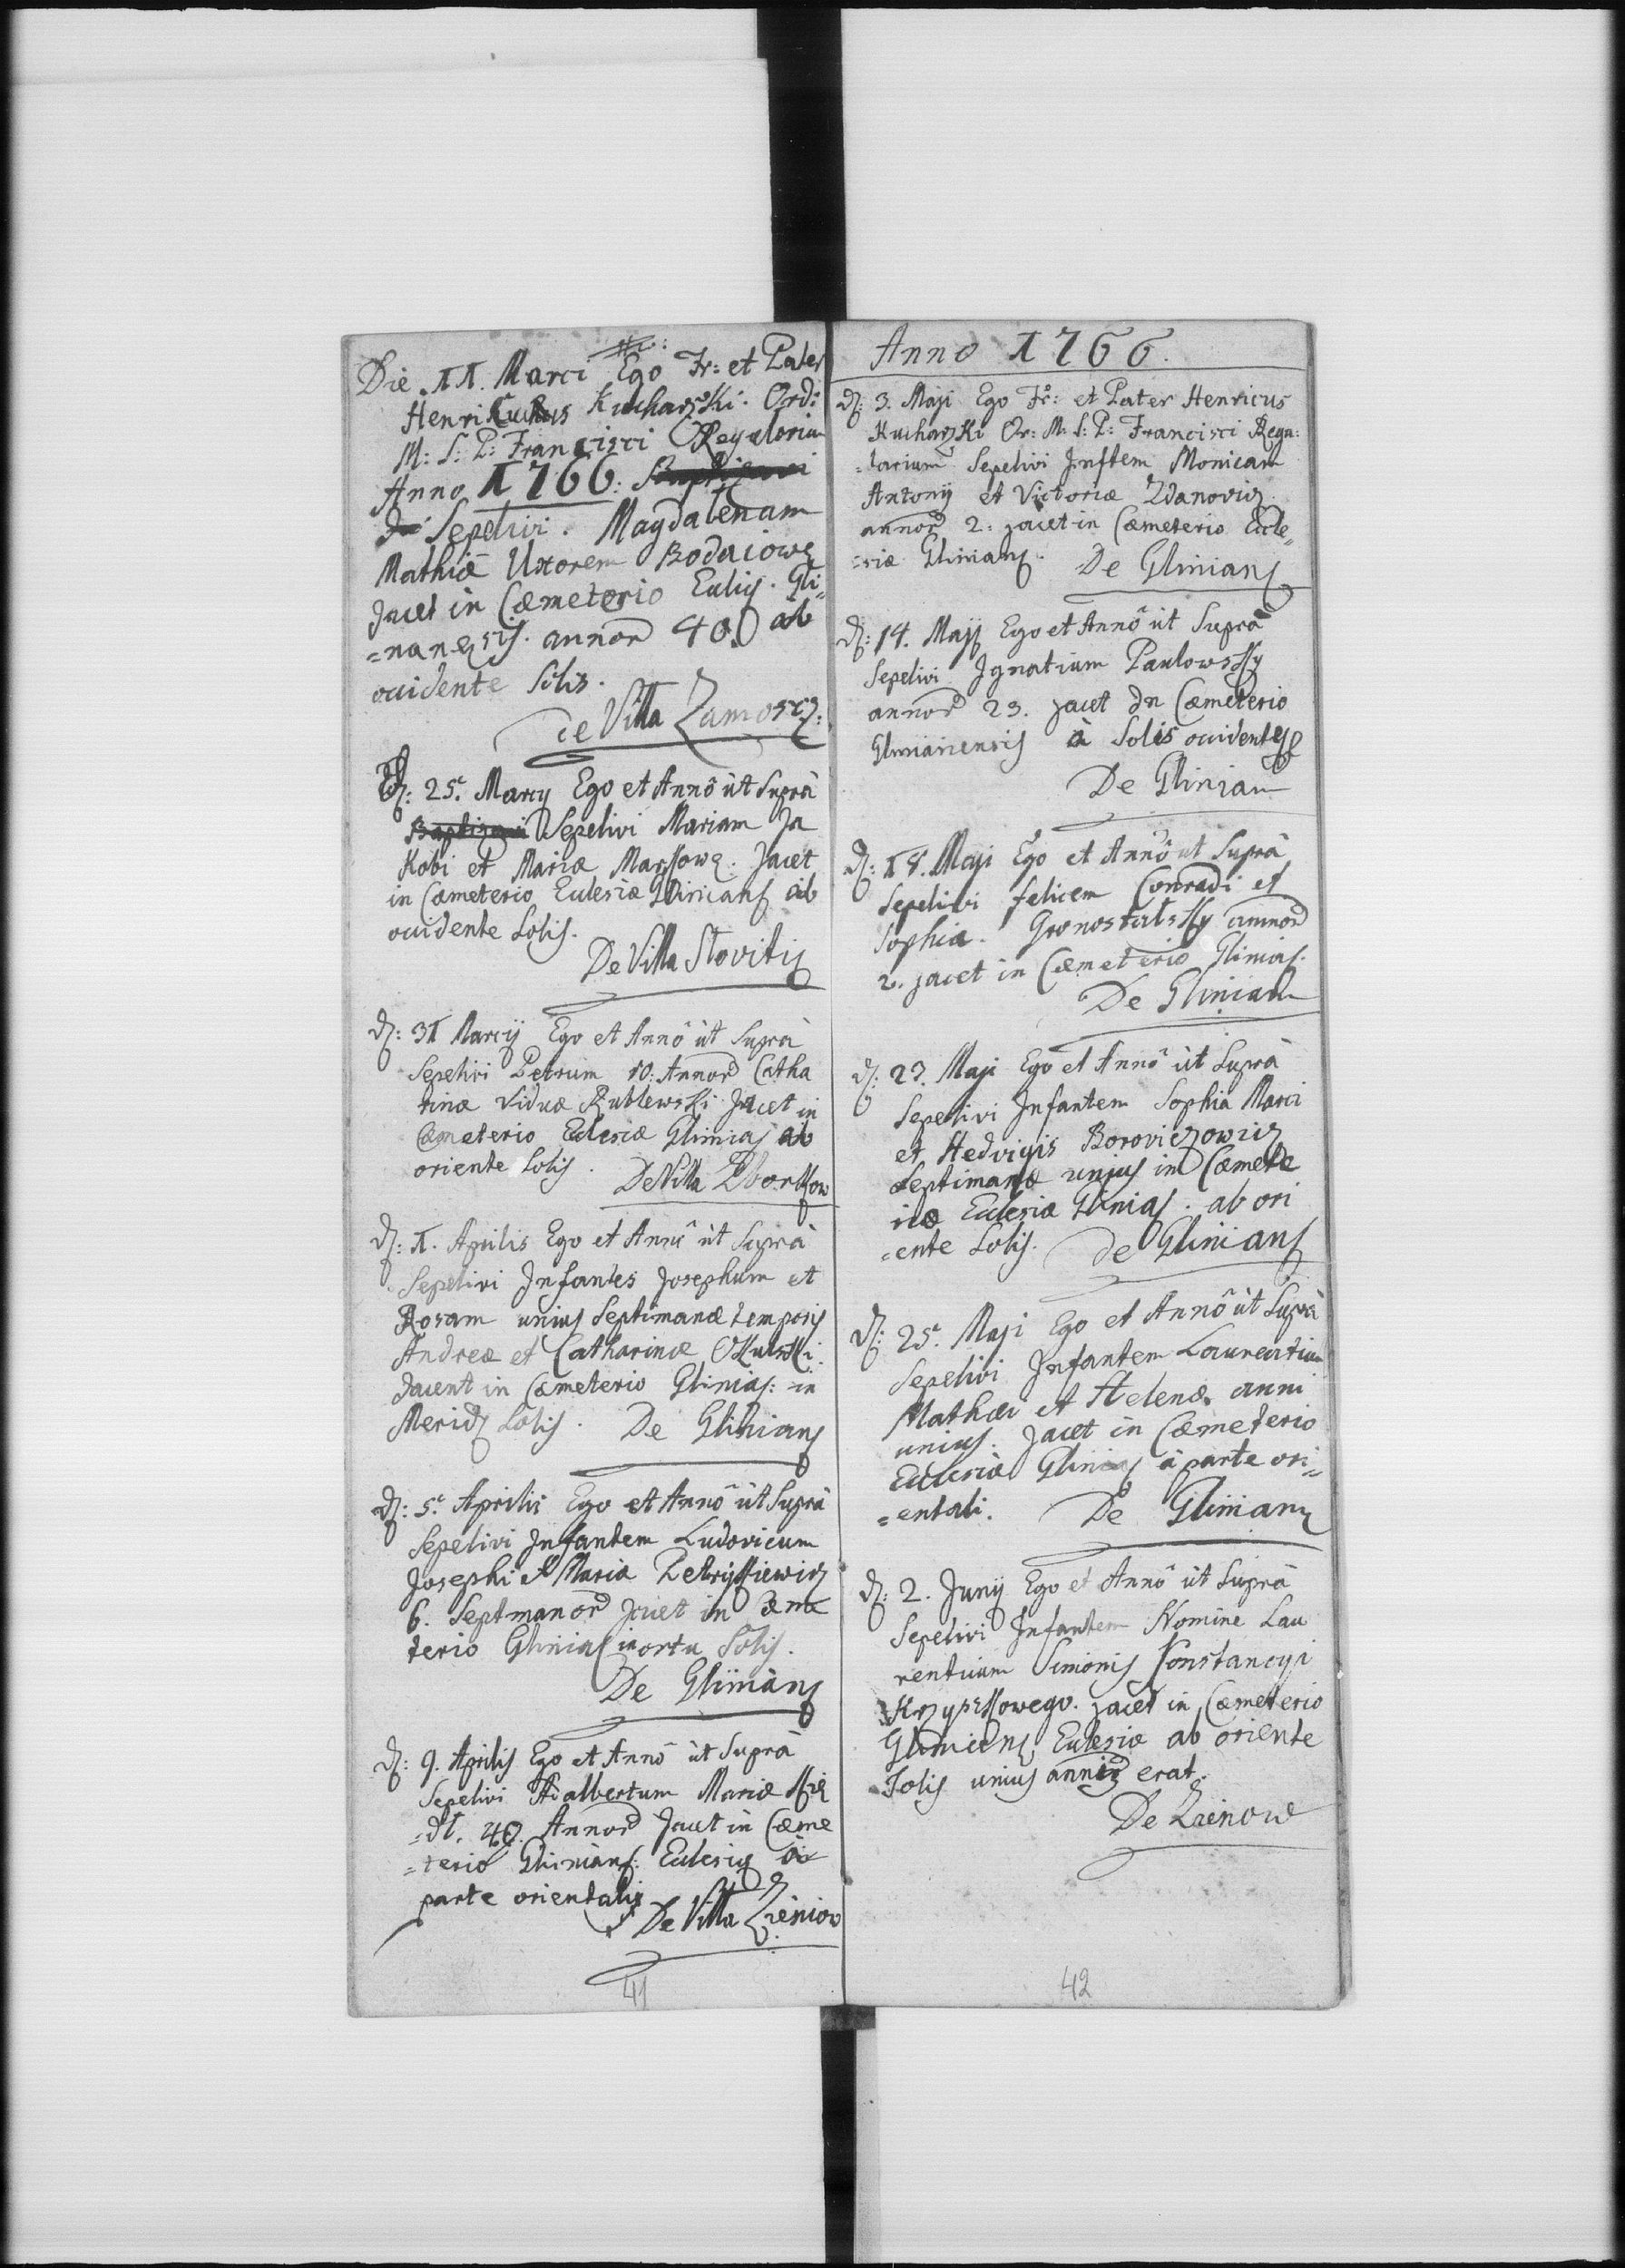 Die 11. Marci Ego Fr: et Pater
Henrikuchus Kucharzki. Ord:
M: S: P: Francisci Regulorium
Anno 1766: Baptizavi
Sepelivi. Magdalenam
Mathiæ Uxorem Bodaiowa
Jacet in Cæmeterio Eclis. Gli=
=nanensis. annor 40 ab
ocidente Solis.
de Villa Zamosc:
D: 25. Marcy Ego et Annô ùt Suprà
Baptizavi Sepelivi Mariam Ja
Kobi et Mariæ Jacet
in Cæmeterio Eclesiæ Glinians ab
ocidente Solis.
De Villa Slovitis
D: 31 Marcij Ego et Annô ùt Suprà
Sepelivi Petrum 10: Annor Catha
rinæ Viduæ Rublewski Jacet in
Cæmeterio Eclesiæ Glinias ab
oriente Solis. De Villa
D: 1. Aprilis Ego et Annô ùt Suprà
Sepelivi Infantes Josephum et
Rosam unius Septimanæ temporis
Andreæ et Catharinæ
Jacent in Cæmeterio Glinias: in
Merid Solis. De Glinians
D: 5. Aprilis Ego et Annô ùt Suprà
Sepelivi Infantem Ludovicum
Josephi et Mariæ
6. Septmanor Jacet in Cæme
terio Glinias in ortu Solis.
De Glinians
D: 9. Aprilis Ego et Annô ùt Suprà
Sepelivi Adalbertum Mariæ
40 Annor Jacet in Cæme
=terio Glinians: Eclesiæ à
parte orientalis De Villa Zieniow
41
Anno 1766.
D: 3. Maji Ego Fr: et Pater Henricus
Kucharzki Or: M: S: P: Francisci Regu:
=larium Sepelivi Inftem Monicam
Antonij et Victoriæ Zdanovicz
annor 2: jacet in Cæmeterio Ecle=
=siæ Glinians. De Glinians
D: 14. Maji Ego et Annô ùt Suprà
Sepelivi Ignatium Pawlowsky
annor 23. jacet In Cæmeterio
Glinianensis à Solis ocidente
De Glinian
D: 18. Maji Ego et Annô ut Suprà
Sepelivi felicem Conradi et
Sophia. Gronostalsky annor
2. jacet in Cæmeterio Glinias.
De Glinian
D: 23. Maji Ego et Annô ùt Suprà
Sepelivi Infantem Sophia Marci
et Hedvigis Borovic
Septimanæ unius in Cæmete
riæ Eclesiæ Glinias. ab ori
=ente Solis. de Glinians
D: 25. Maji Ego et Annô ùt Suprà
Sepelivi Infantem Laurentium
Mathæi et Helenæ anni
unius. Jacet in Cæmeterio
Eclesiæ Glinias à parte ori=
=entali. De Glinians
D: 2. Junij Ego et Annô ùt Suprà
Sepelivi Infantem Nomine Lau
rentium Simonis Konstancyi
jacet in Cæmeterio
Glinians Eclesiæ ab oriente
Solis unius anni erat.
De Zienow
42